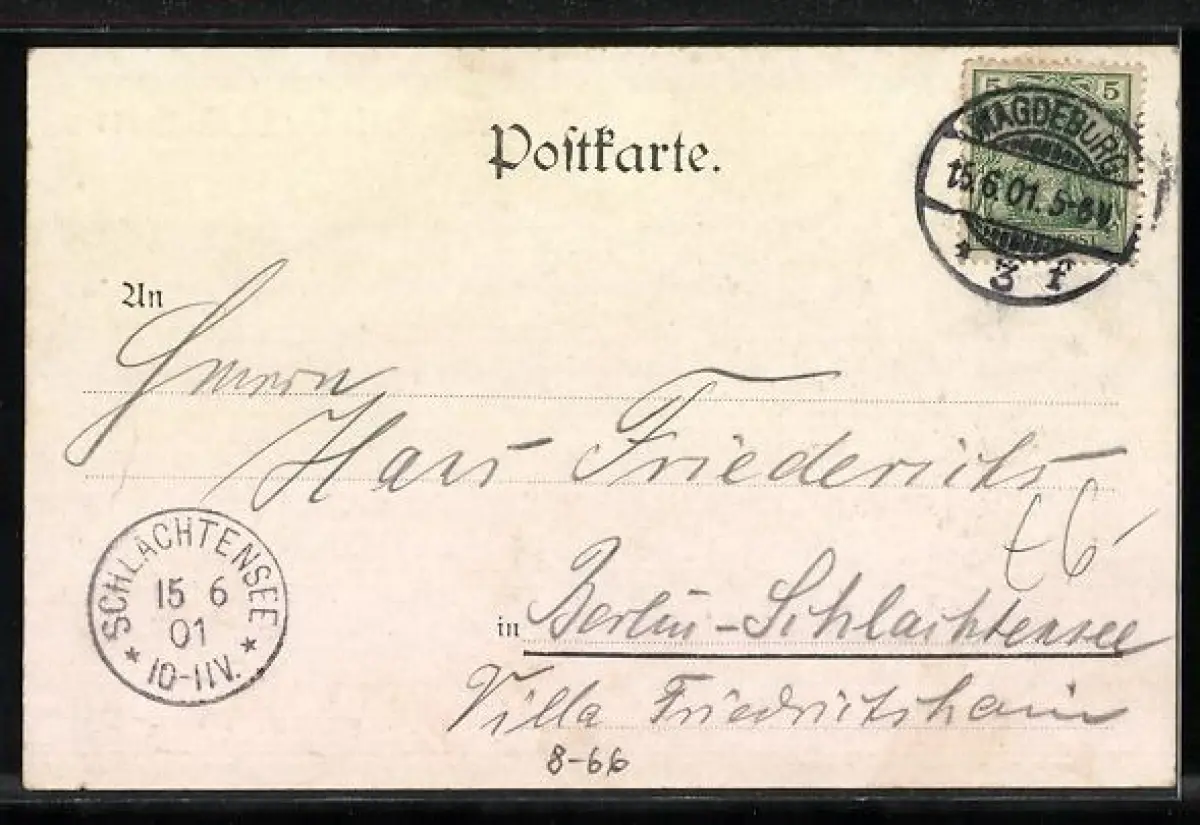 5 5
MAGDEBURG
15.6.01.5-6V.
* 3 f
POST
Postkarte.
An
Herrn
Hans Friederichs
SCHLACHTENSEE
15 6
01
* 10-11V. *
in Berlin-Schlachtensee
Villa Friedrichshain
8-66